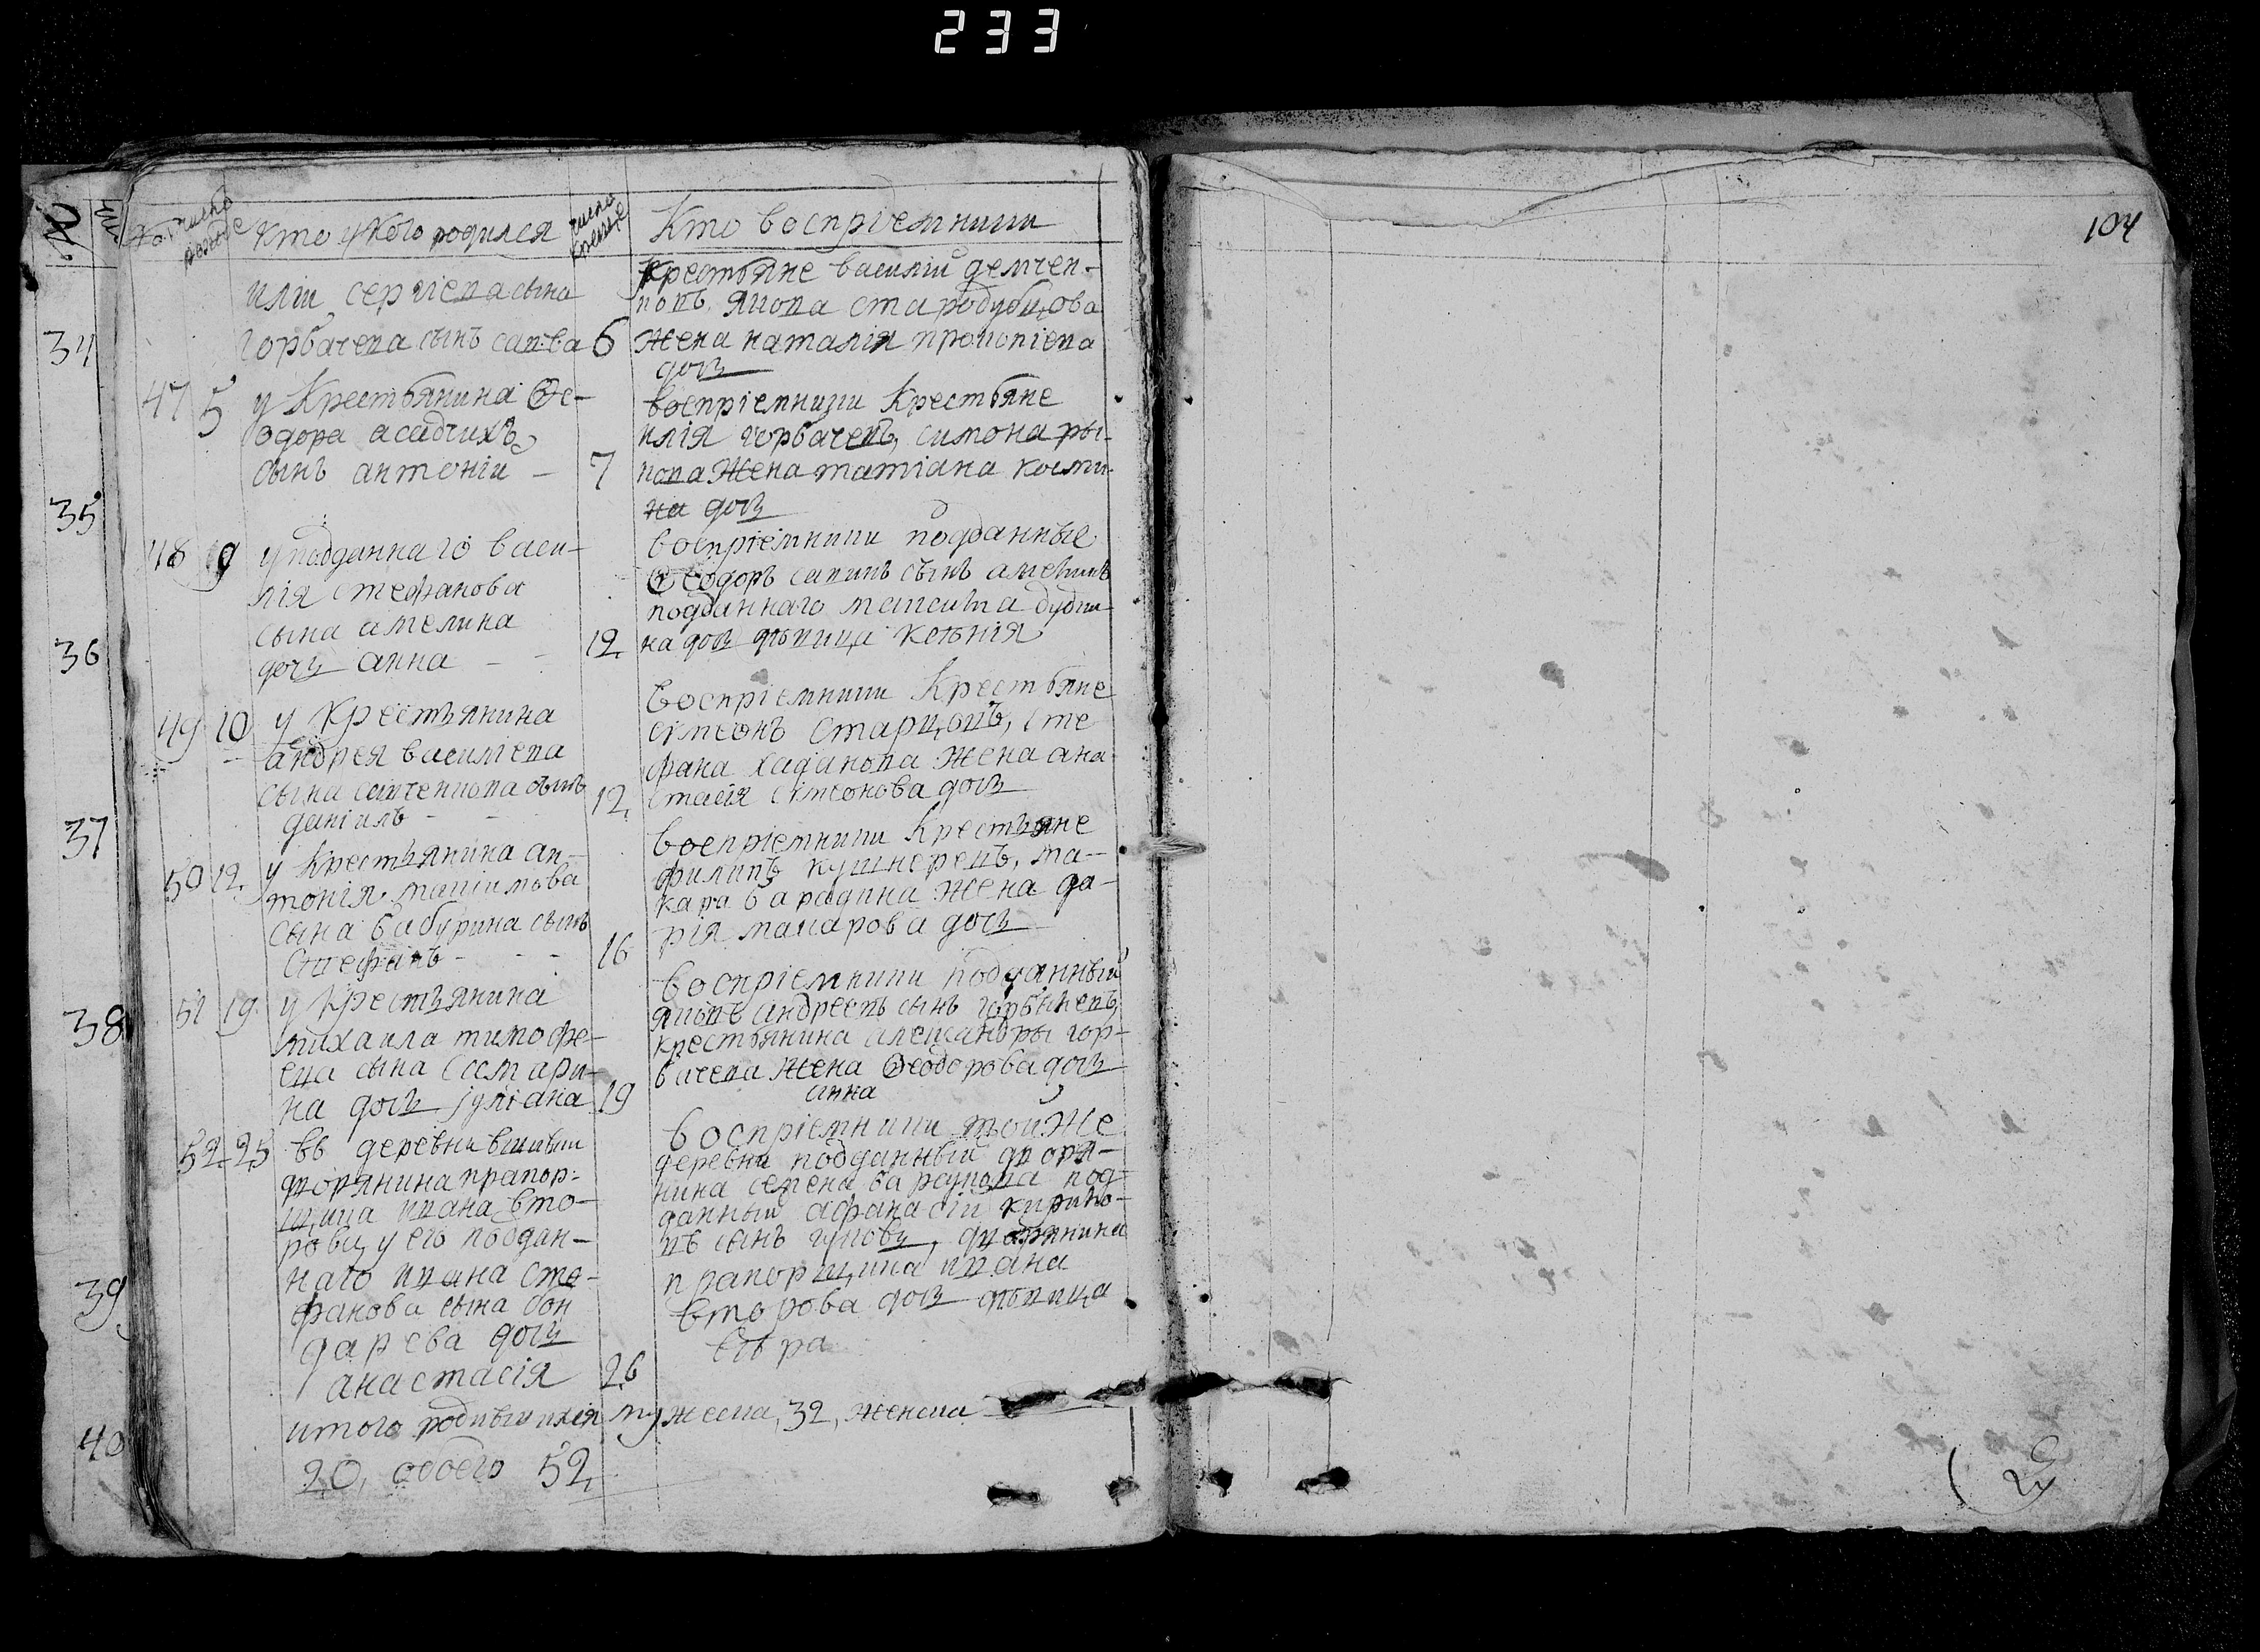 233
104
№ число рожде кто у кого родился число креще Кто восприемники
иліи сергіева сына
горбачева сынъ савва 6
крестьяне василіи демчен-
ковъ якова стародубцова
жена наталія прокопіева
дочь
47 5 у Крестьянина Ѳе-
одора асадчихъ
сынъ антоніи - 7
воспріемники Крестьяне
илія горбачевъ, симона ры-
кова жена татіана косми-
на дочь
48 9 у подданнаго васи-
лія стефанова
сына амелина
дочь анна - - 12
воспріемники подданные
Ѳеодоръ савинъ сынъ амелинъ
подданнаго максима дудки-
на дочь дѣвица ксенія
49 10 у Крестьянина
андрея василіева
сына савченкова сынъ
даніилъ - - 12
воспріемники Крестьяне
сімеонъ старцовъ, сте
фана хаданова жена ана
стасія сімеонова дочь
50 12 у Крестьянина ан-
тонія максимова
сына бабурина сынъ
стефанъ - - - 16
воспріемники Крестьяне
филипъ кушнеревъ, ма-
кара барадина жена да-
рія макарова дочь
51 19 у Крестьянина
михаила тимофе-
ева сына состари-
на дочь іуліана 19
воспріемники подданный
яковъ андреевъ сынъ горбачевъ,
крестьянина александры гор-
бачева жена Ѳеодорова дочь
анна
52 25 въ деревни
дворянина прапор-
щика ивана вто-
рова у его поддан-
наго ивана сте-
фанова сына бон
дарева дочь
анастасія 26
воспріемники тойже
деревни подданный дворя-
нина семена под-
данный афанасій кирило-
въ сынъ дворянина
прапорщика ивана
второва дочь дѣвица
вѣра
итого родившихся мужеска, 32, женска
20, обоего 52,
34
35
36
37
38
39
40